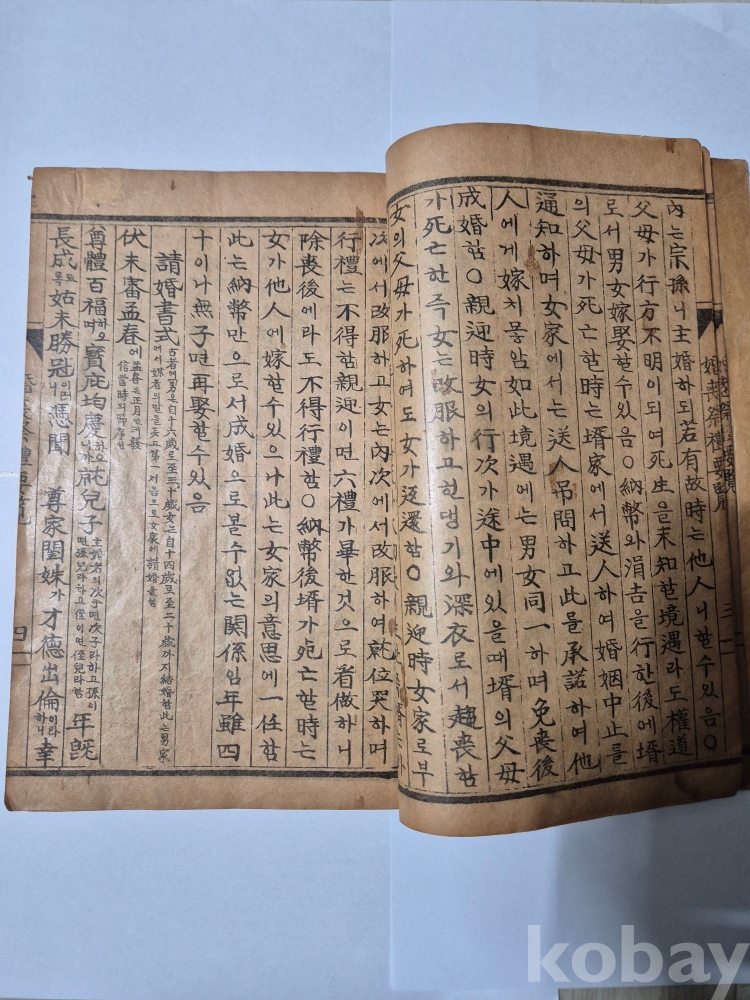 內는宗孫니主婚하되若有故時는他人니할수있음○
父母가行方不明이되여死生을未知할境遇라도權道
로서男女嫁娶할수있음○納幣와涓吉을行한後에壻
의父母가死亡할時는壻家에서送人하여婚姻中止를
通知하며女家에서는送人吊問하고此를承諾하여他
人에게嫁치몿암如此境遇에는男女同一하며免喪後
成婚함○親迎時女의行次가途中에있을때壻의父母
가死亡한즉女는改服하고헌댕기와深衣로서趨喪함
女의父母가死하여도女가返還함○親迎時女家로부
次에서改服하고女는內次에서改服하여就位哭하며
行禮는不得함親迎이면六禮가畢한것으로看做하니
除喪後에라도不得行禮함○納幣後壻가死亡할時는
女가他人에嫁할수있으나此는女家의意思에一任함
此는納幣만으로서成婚으로볼수없는關係임年雖四
十이나無子면再娶할수있음
請婚書式 古者에男은自十六歲로至三十歲女는自十四歲로至二十歲까지結婚함此는男家에서
伏未審孟春에 孟春은正月인데發信當時의節序
尊體百福하오며寶庇均慶하오니까㐀兒子 主婚者의次子면次子라하고孫이면孫兒라하고侄이면侄兒라함 年旣
長成토록姑未勝冠이러니憑聞 尊家閨姝가才德出倫이라하니幸
四
婚喪祭禮要覽
三